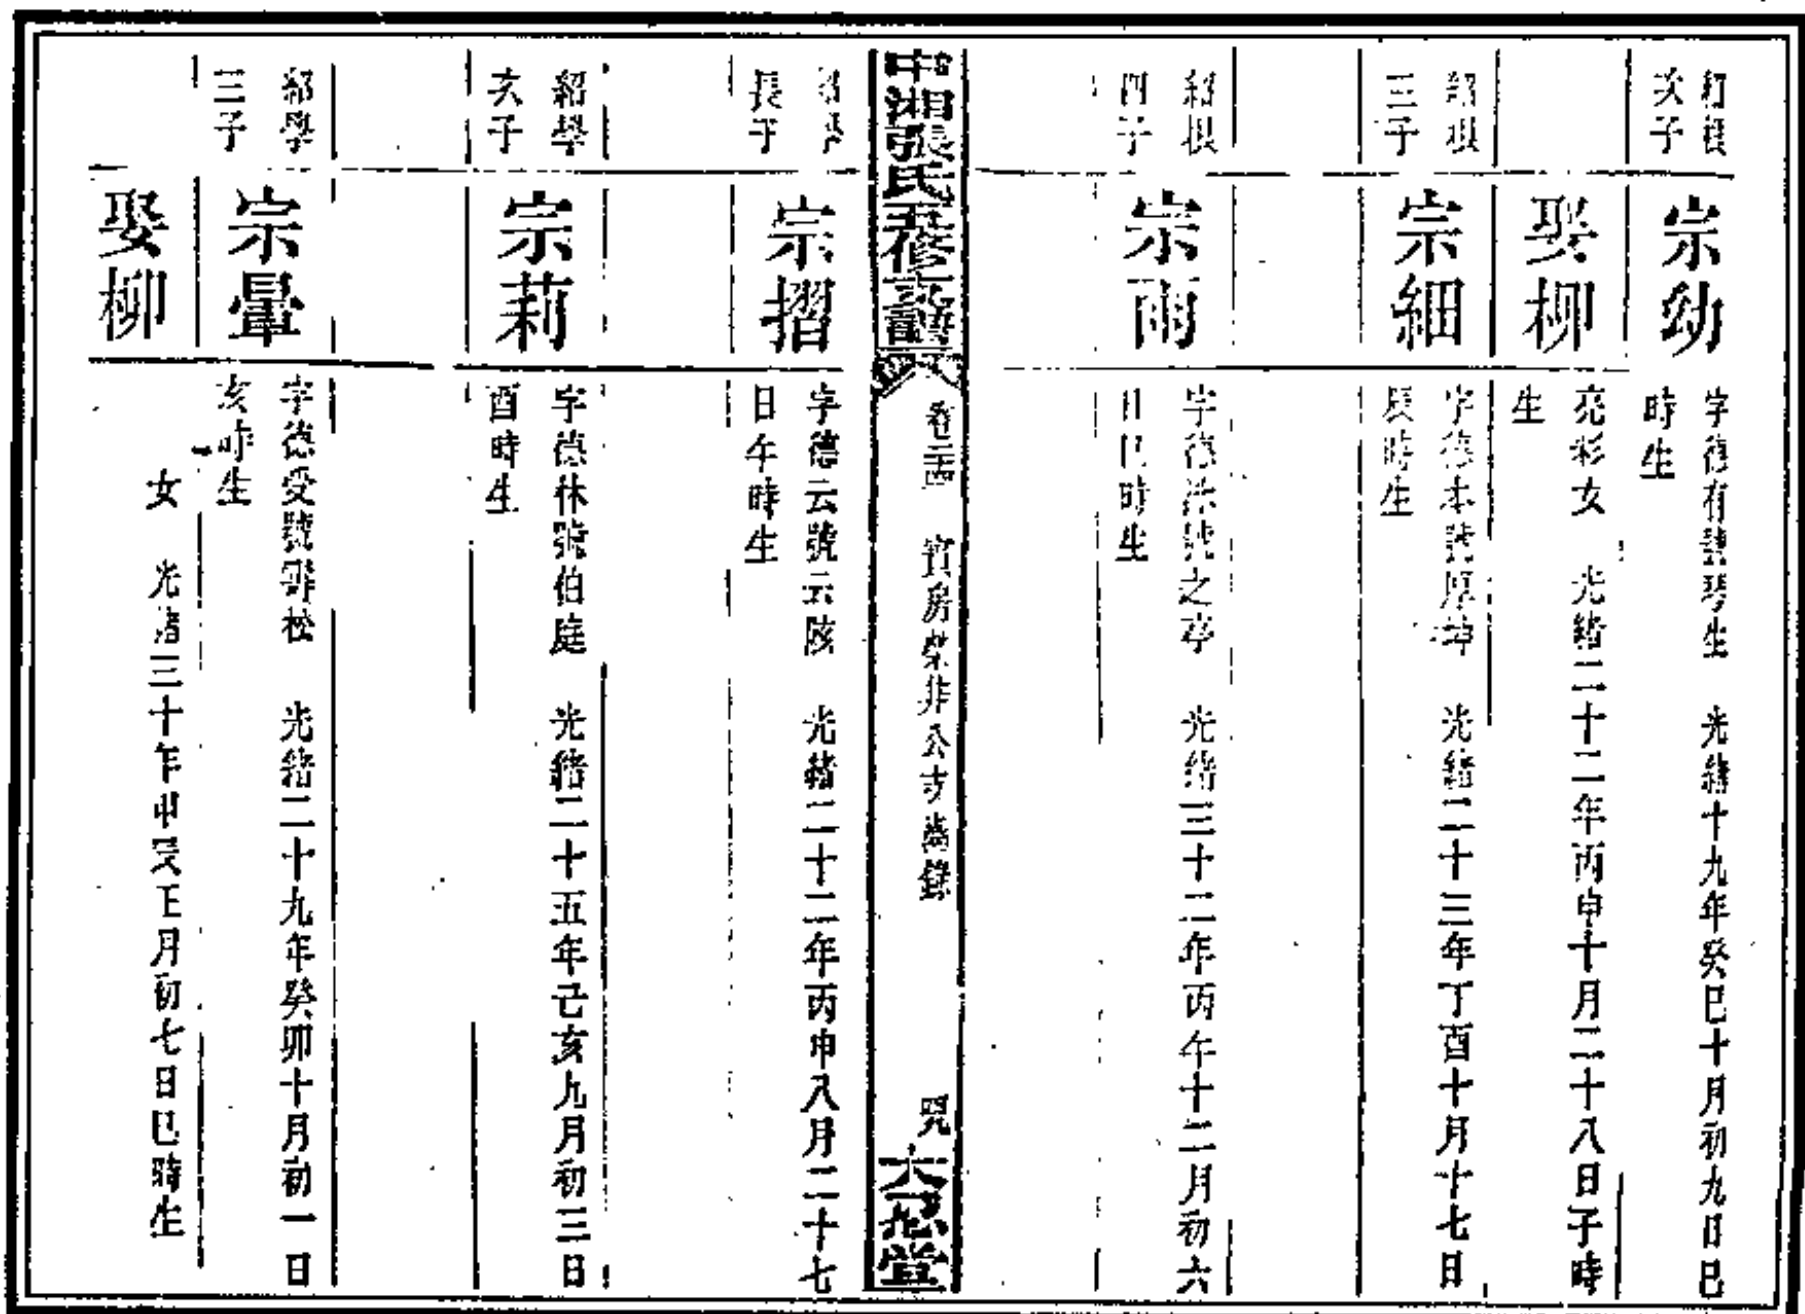 紹根
次子
宗幼
字德有號琴生　光緒十九年癸巳十月初九日巳
時生
娶柳
亮彩女　光緒二十二年丙申十月二十八日子時
生
紹根
三子
宗細
字德本號厚坤　光緒二十三年丁酉十月十七日
辰時生
紹根
四子
宗雨
字德 號之亭　光緒三十二年丙午十二月初六
日巳時生
中湘張氏五修支譜
卷 　 房榮非公支齒錄
大忍堂
長子
宗摺
字德云號云陔　光緒二十二年丙申八月二十七
日午時生
紹學
次子
宗莉
字德休號伯庭　光緒二十五年己亥九月初三日
酉時生
紹學
三子
宗暈
字德受號 松　光緒二十九年癸卯十月初一日
亥時生
娶柳
女　光緒三十年甲辰正月初七日巳時生